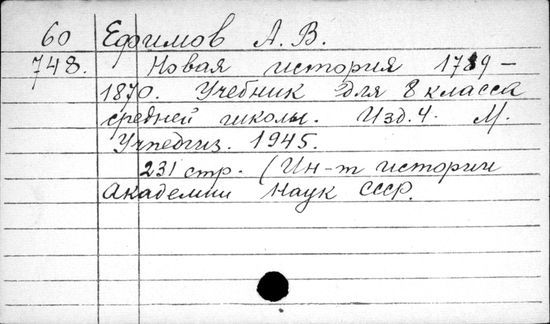 60 Ефимов А. В.
748. Новая история 1789 –
1870. Учебник для 8 класса
средней школы. Изд. 4. М.
Учпедгиз. 1945.
231 стр. (Ин-т истории
Академии Наук СССР.